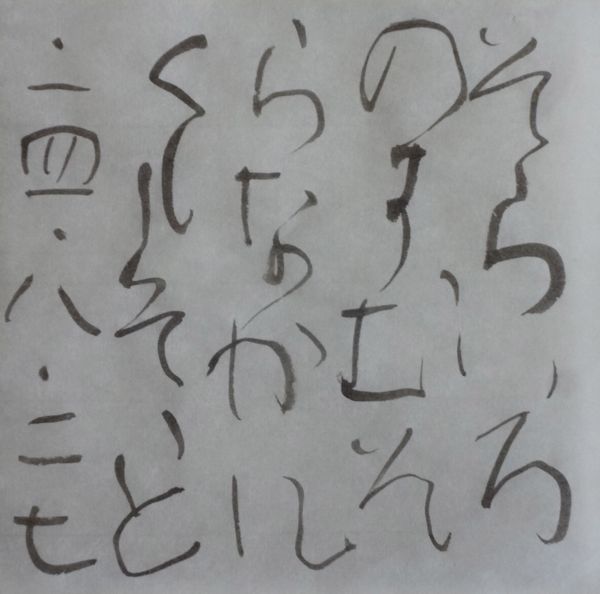 そらいろ
のすむそ
らなかれ
くしそと
二四・八・二七